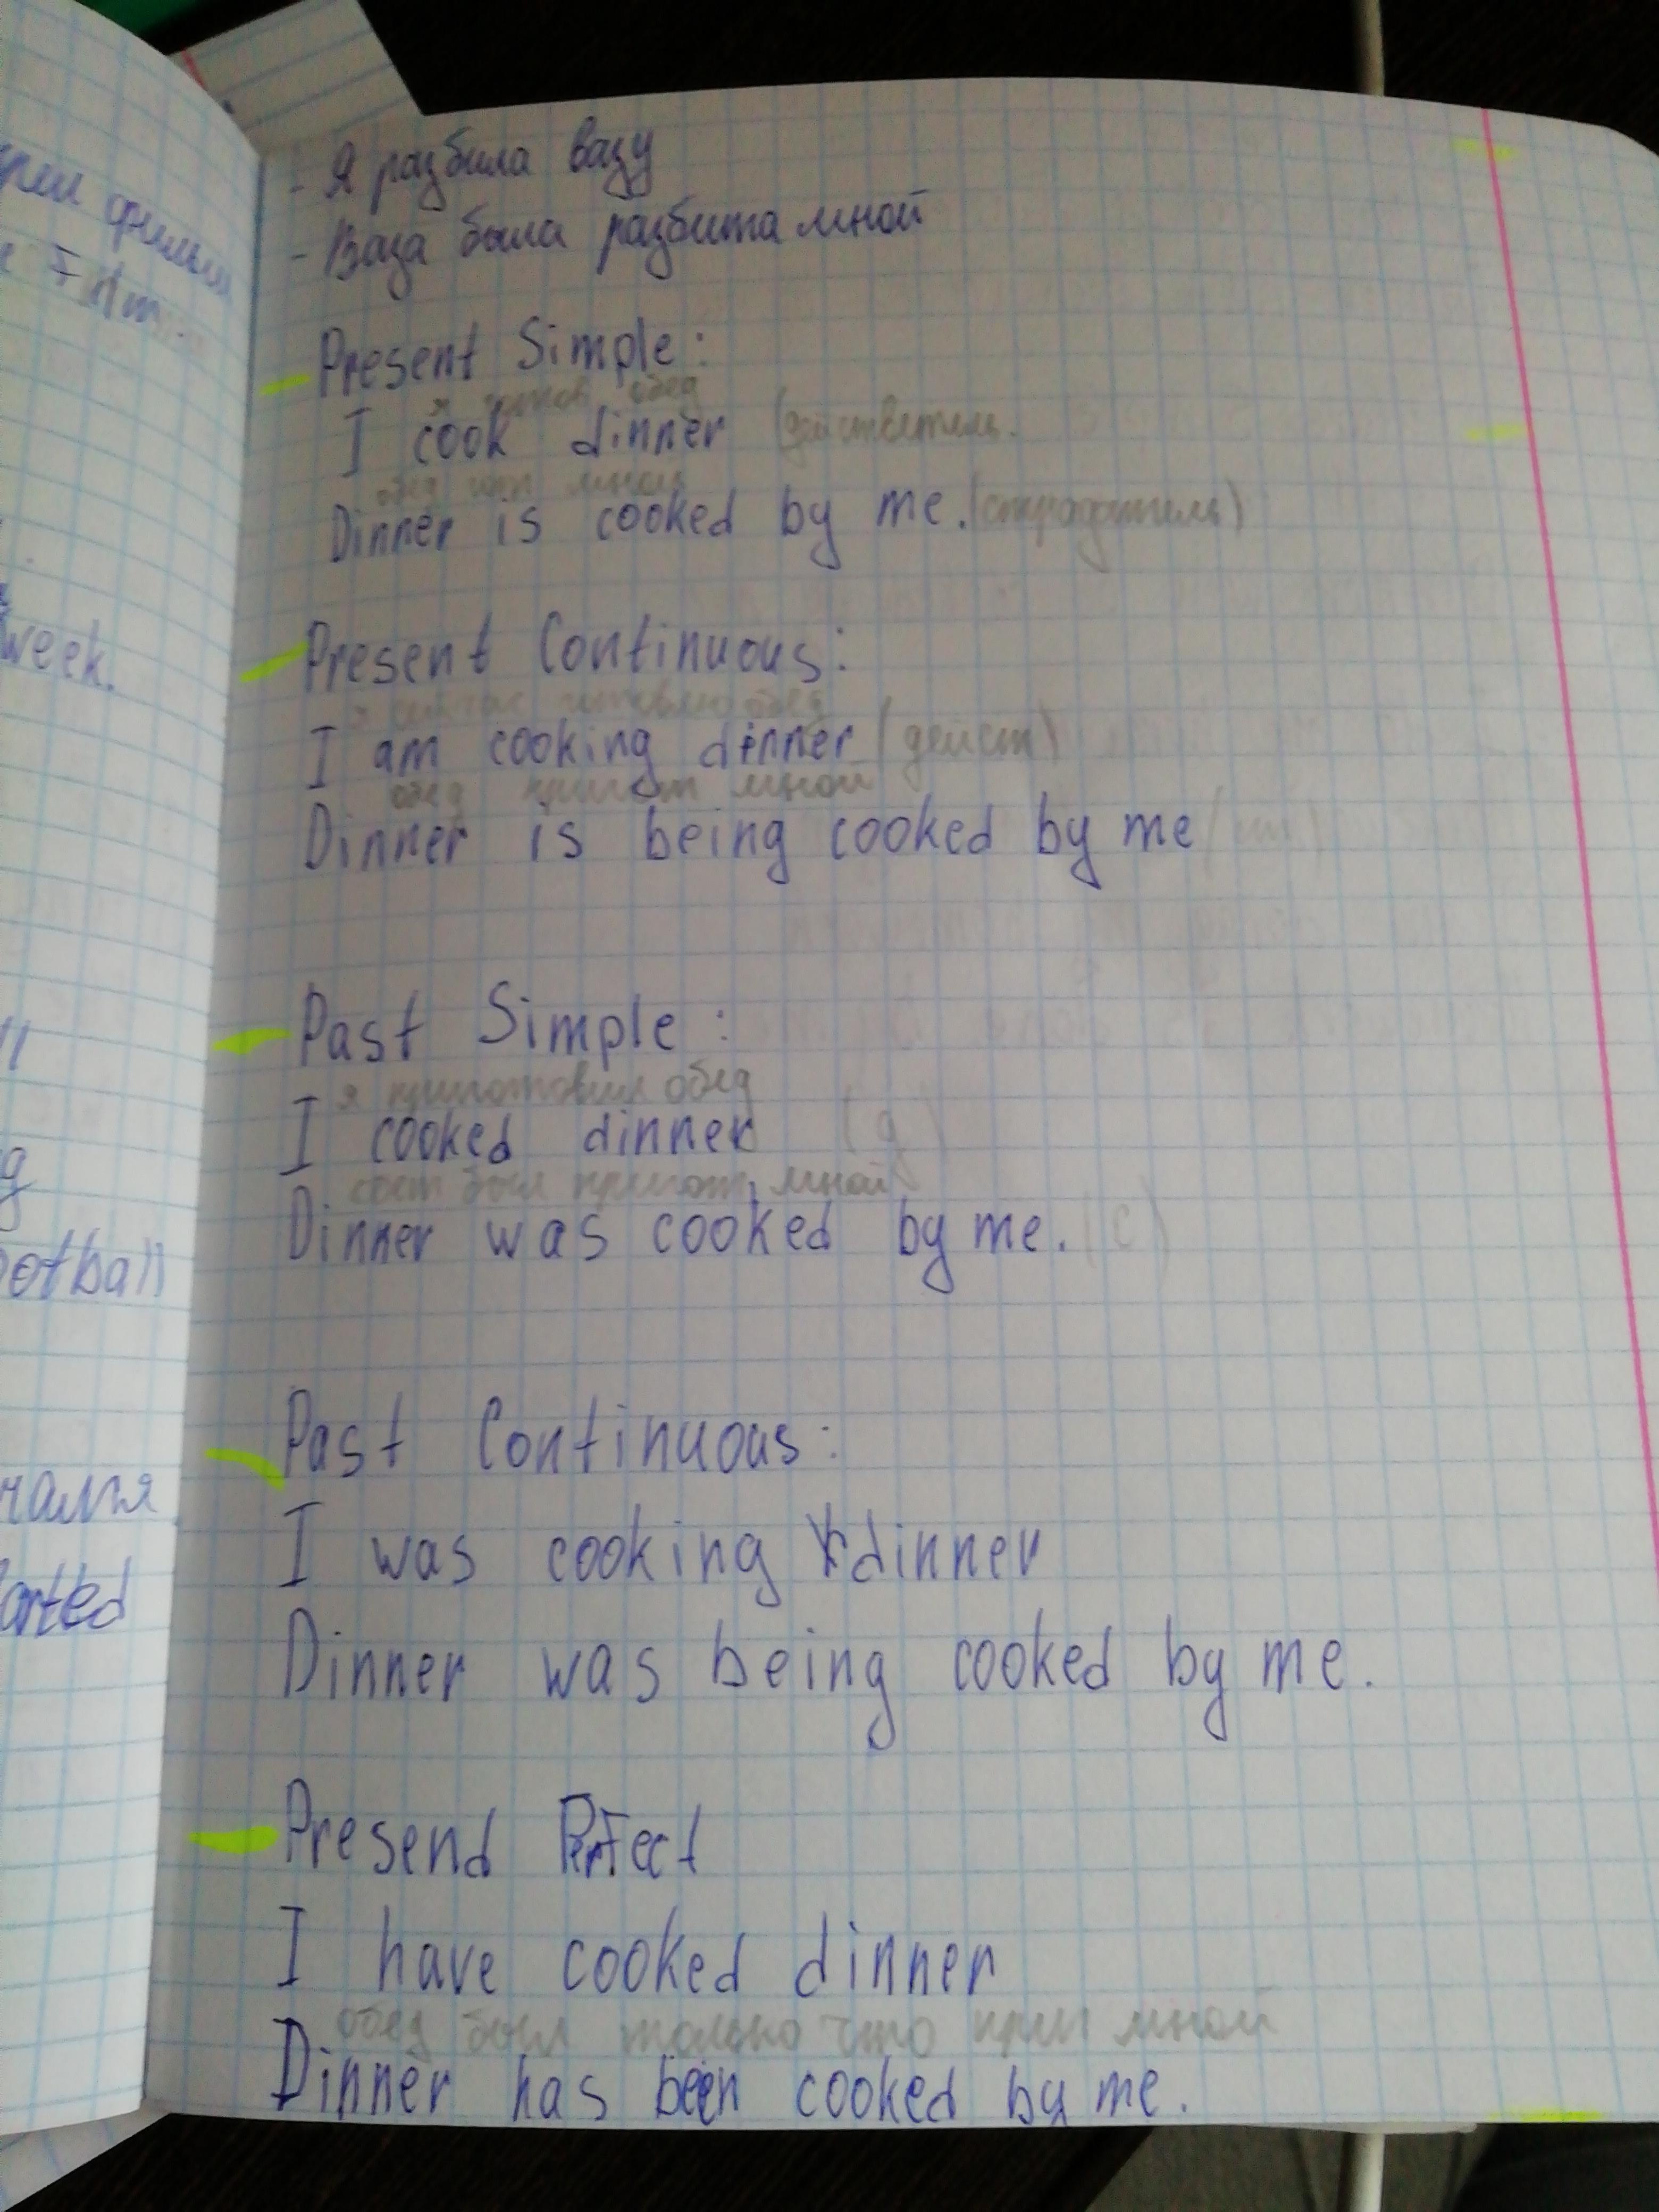 - Я разбила вазу
- Ваза была разбита мной
Present Simple:
обед
I cook dinner (действитель.
обед мной
Dinner is cooked by me. (страдатель)
Present Continuous:
я сейчас готовлю обед
I am cooking dinner (дейст)
обед пригот мной
Dinner is being cooked by me
Past Simple:
я приготовил обед
I cooked dinner (д)
был пригот мной
Dinner was cooked by me. (с)
Past Continuous:
I was cooking dinner
Dinner was being cooked by me.
Presend Perfect
I have cooked dinner
обед был только что приг мной
Dinner has been cooked by me.
week.